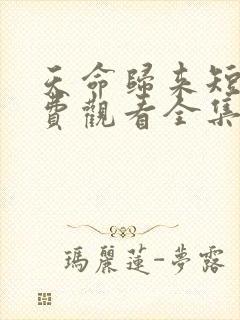 天命歸來短
費觀看全集
瑪麗蓮-夢露